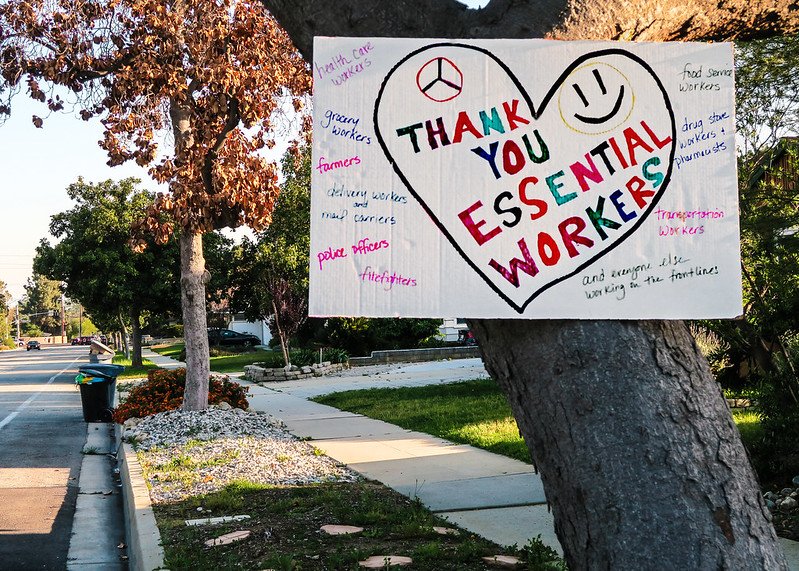 health care
workers
grocery
workers
farmers
delivery workers
and
mail carriers
police officers
firefighters
THANK
YOU
ESSENTIAL
WORKERS
food service
workers
drug store
workers +
pharmacists
transportation
workers
and everyone else
working on the frontlines